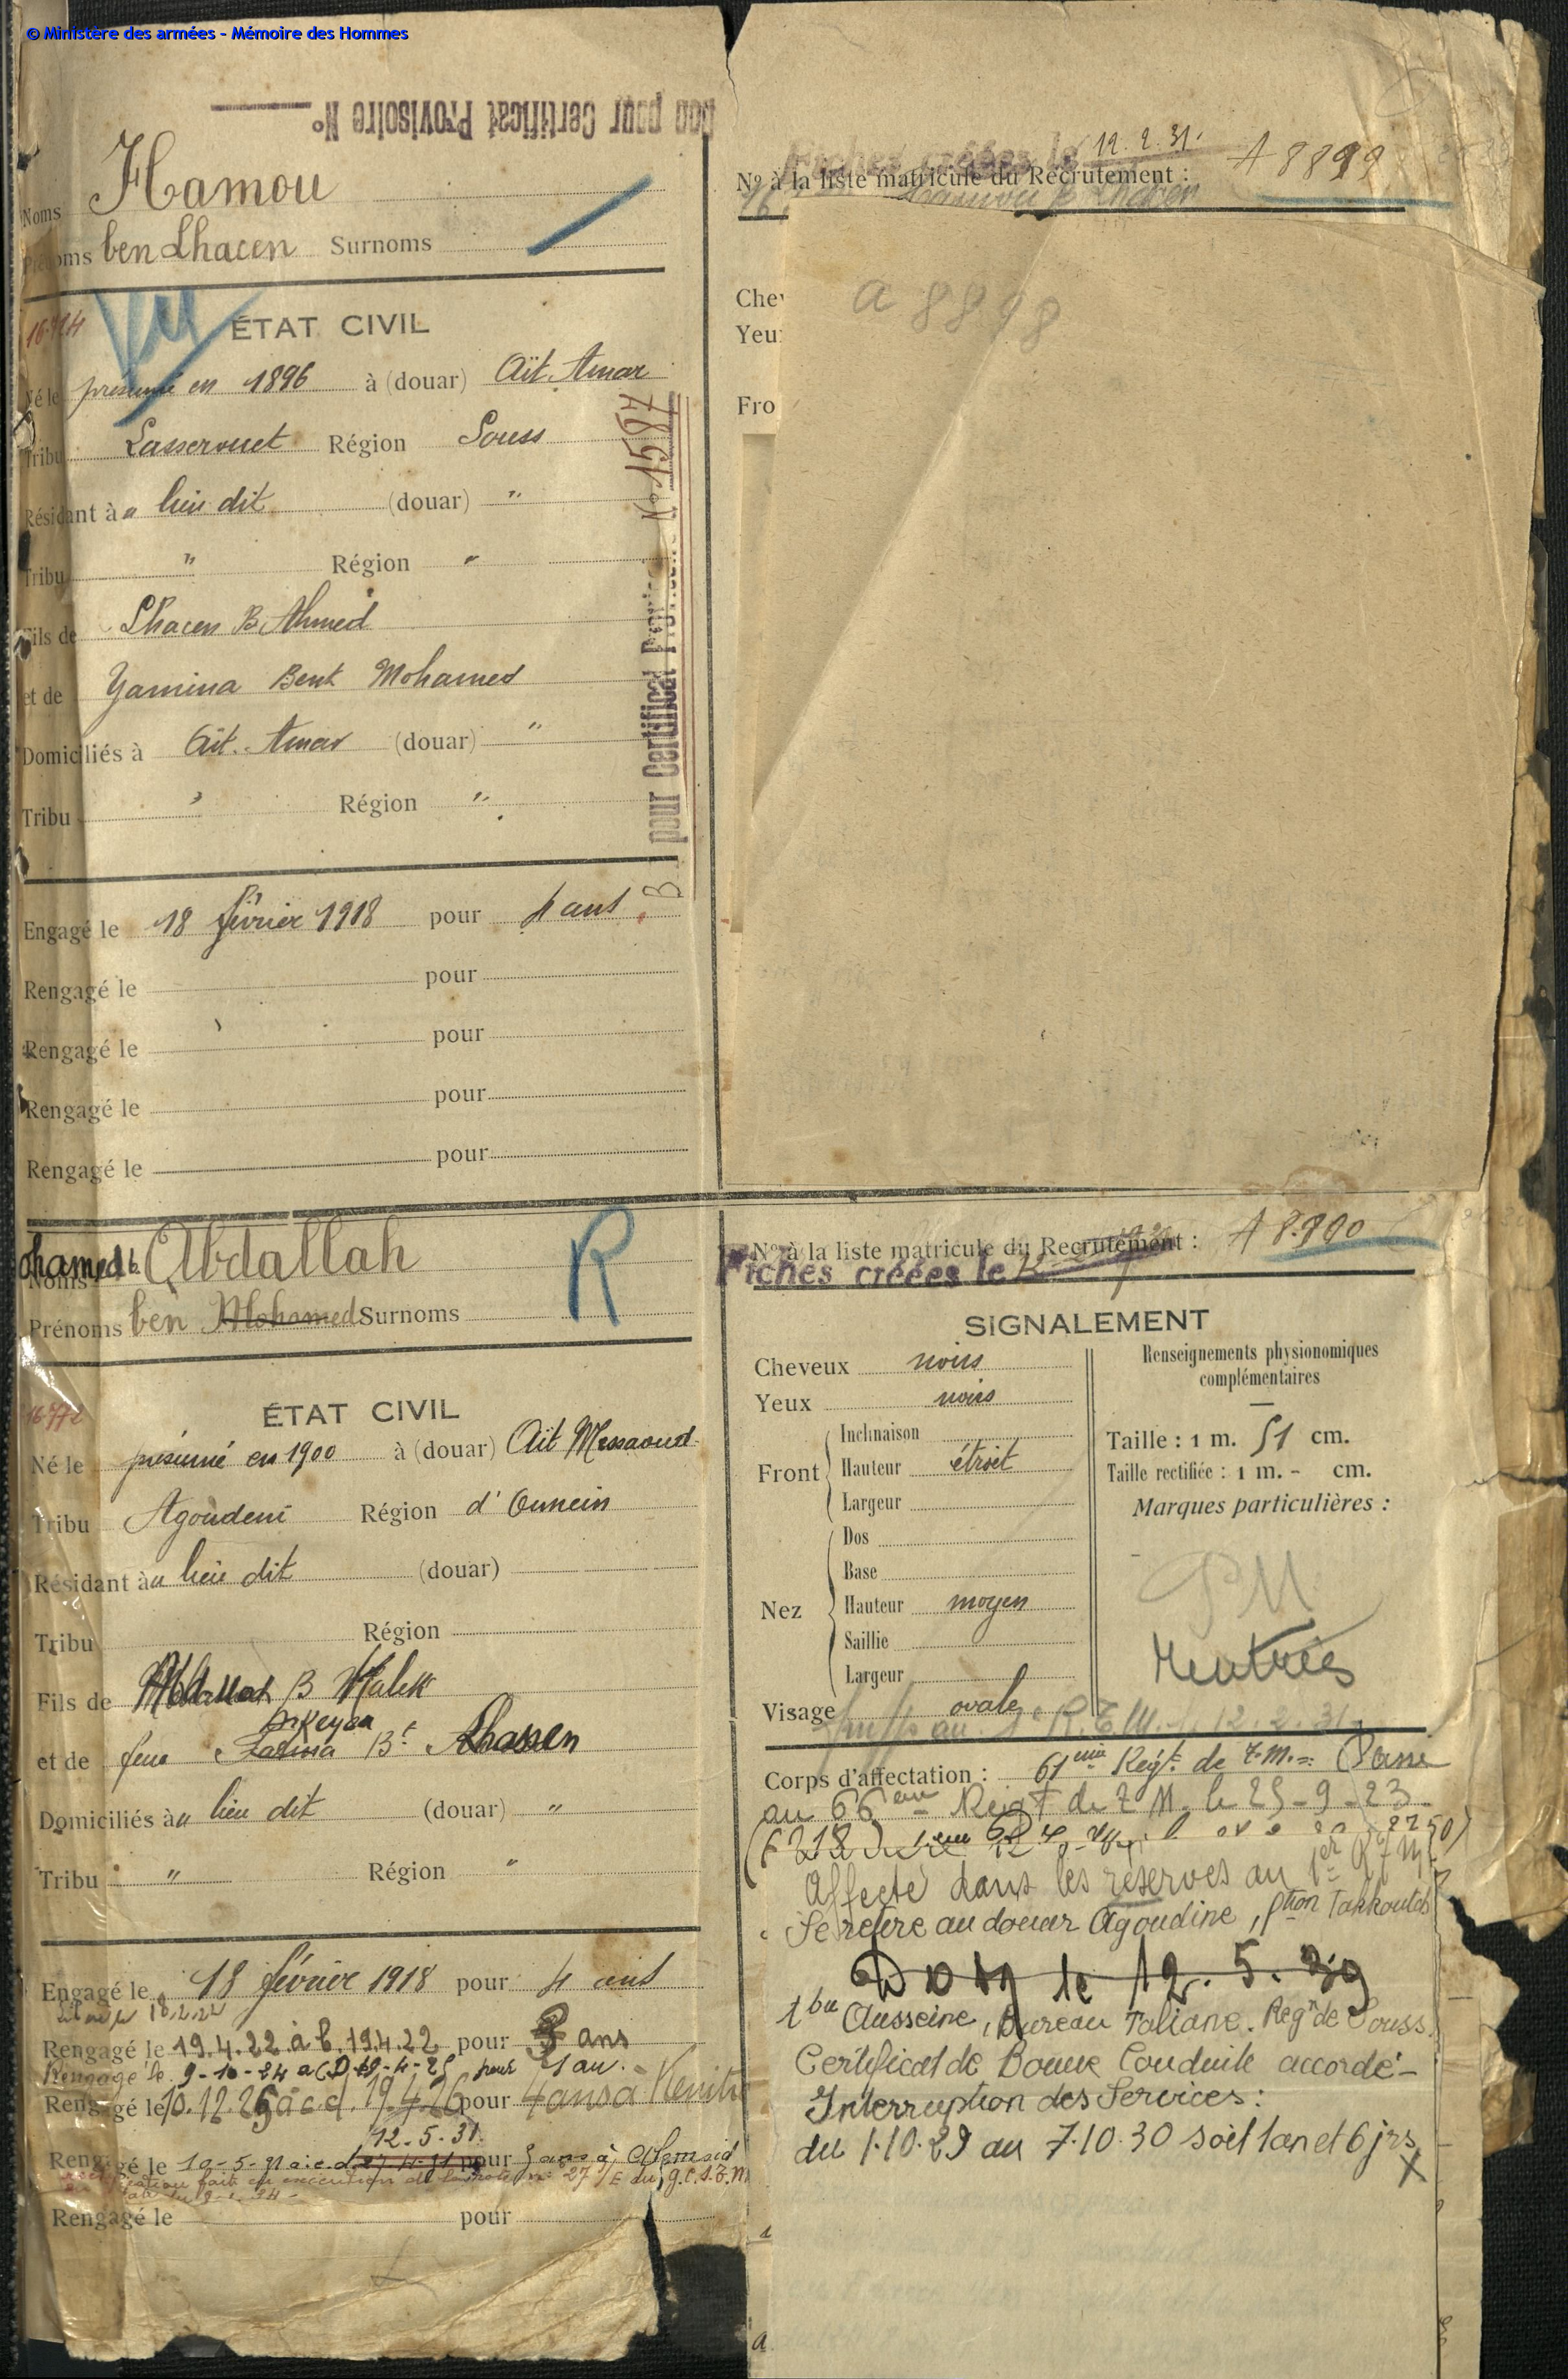 © Ministère des armées - Mémoire des Hommes
Bon pour Certificat Provisoire N°
Noms Hamou
Prénoms ben Lhacen Surnoms
ÉTAT CIVIL
Né le présumé en 1896 à (douar) Aït Amar
Tribu Lasserouet Région Souss
Résidant à u lieu dit (douar) "
Tribu " Région "
Fils de Lhacen B Ahmed
et de Yamina Bent Mohamed
Domiciliés à Aït. Amar (douar) "
Tribu " Région "
pour Certificat N° 1587
B
Engagé le 18 février 1918 pour 4 ans
Rengagé le pour
Rengagé le pour
Rengagé le pour
Rengagé le pour
Fiches créées le 12.2.31.
N° à la liste matricule du Recrutement : A 8899
a 8898
Chev
Yeu
Fro
ohamed b. Abdallah
Noms
Prénoms ben Mohamed Surnoms
R
ÉTAT CIVIL
Né le présumé en 1900 à (douar) Aït Messaoud
Tribu Agoudeni Région d'Ounein
Résidant à u lieu dit (douar)
Tribu Région
Fils de B Malek
et de feue Bt Lhassen
Domiciliés à u lieu dit (douar) "
Tribu " Région "
Engagé le 18 février 1918 pour 4 ans
18.2.22
Rengagé le 19.4.22 à c 19.4.22 pour 3 ans
Rengagé le 9-10-24 a CD 19-4-25 pour 1 an.
Rengagé le 10.12.25 à c d. 19.4.26 pour 4 ans à Kenitra
12.5.31.
Rengagé le 10-5-31 a.c.d. pour 3 ans à
fait en exécution de la note n° 27/E du g.c.s.T.M
Rengagé le pour
N° à la liste matricule du Recrutement : A 8.900
Fiches créées le 12
SIGNALEMENT
Cheveux noirs
Yeux noirs
Front
Inclinaison
Hauteur étroit
Largeur
Nez
Dos
Base
Hauteur moyen
Saillie
Largeur
Visage ovale
Renseignements physionomiques
complémentaires
Taille : 1 m. 51 cm.
Taille rectifiée : 1 m. - cm.
Marques particulières :
PM
Rentrés
au 1e R.T.M. 12.2.31.
Corps d'affectation : 61ème Regt. de T.M. = Passé
au 66ème Regt de T M. le 25-9-23
Affecté dans les réserves au 1er R T M
Se retire au douar Agoudine, fton Takkoutch
le 12.5.39
tbu Ausseine, Bureau Taliane. Regn de Souss.
Certificat de Bonne Conduite accordé -
Interruption des Services :
du 1.10.29 au 7.10.30 soit 1 an et 6 jrs